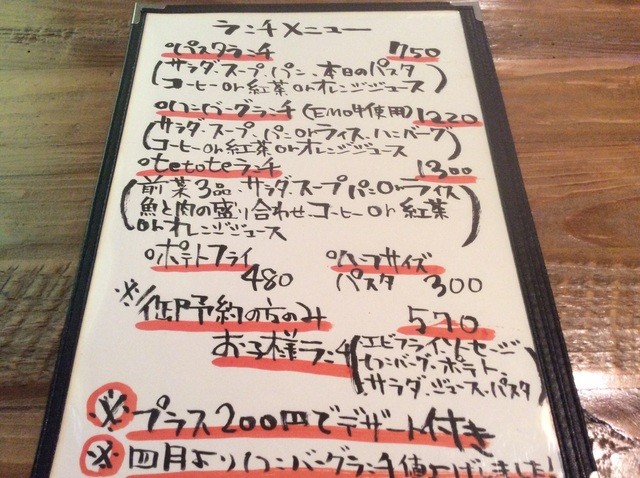 ランチメニュー
○パスタランチ 750
(サラダ、スープ、パン、本日のパスタ
コーヒーor紅茶orオレンジジュース)
○ハンバーグランチ(EMO牛使用) 1220
(サラダ、スープ、パンorライス、ハンバーグ
コーヒーor紅茶orオレンジジュース)
○tetoteランチ 1300
(前菜3品、サラダ、スープ パンorライス
魚と肉の盛り合わせ、コーヒーor紅茶
orオレンジジュース)
○ポテトフライ 480
○ハーフサイズ
パスタ 300
※御予約の方のみ 570
お子様ランチ
(エビフライ、ソーセージ
ハンバーグ・ポテト、
サラダ、ジュース・パスタ)
※プラス200円でデザート付き
※四月よりハンバーグランチ値上げしました!